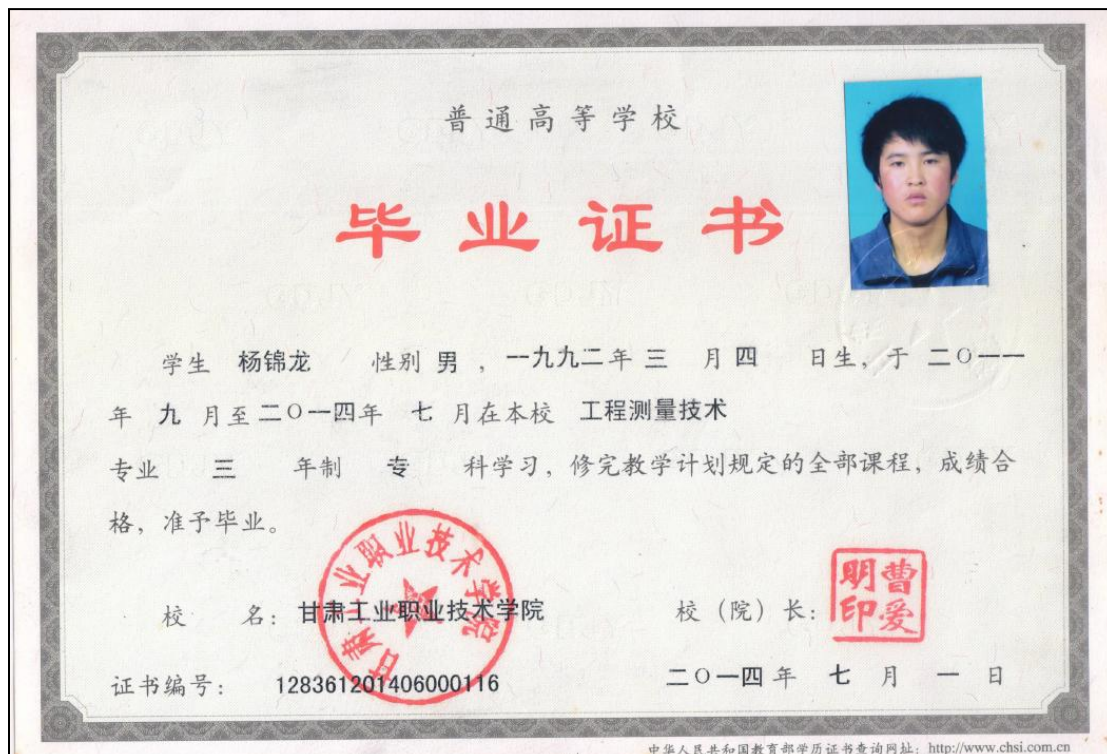 普通高等学校
毕业证书
学生 杨锦龙 性别 男 ，一九九二年 三 月 四 日生，于 二〇一一
年 九 月至二〇一四年 七 月在本校 工程测量技术
专业 三 年制 专 科学习，修完教学计划规定的全部课程，成绩合
格，准予毕业。
甘肃工业职业技术学院
曹爱明印
校 名：甘肃工业职业技术学院 校（院）长：
证书编号： 128361201406000116 二〇一四年 七 月 一 日
中华人民共和国教育部学历证书查询网址：http://www.chsi.com.cn